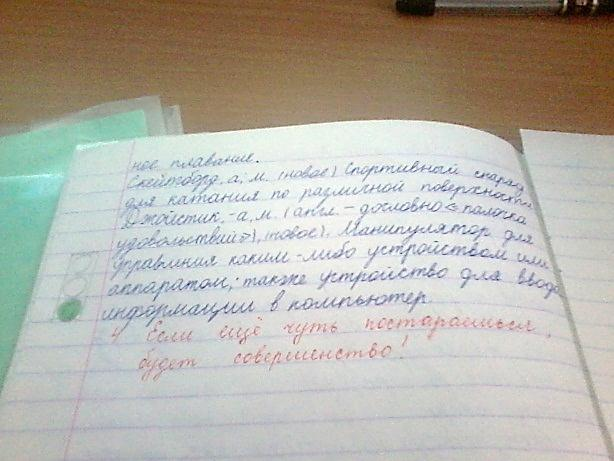 ное плавание.
Скейтборд, а; м. (новое) Спортивный снаряд
для катания по различной поверхности.
Джойстик, -а, м. (англ. - дословно «палочка
удовольствий»), (новое). Манипулятор для
управления каким-либо устройством или
аппаратом; также устройство для ввода
информации в компьютер.
Если ещё чуть постараешься,
будет совершенство!